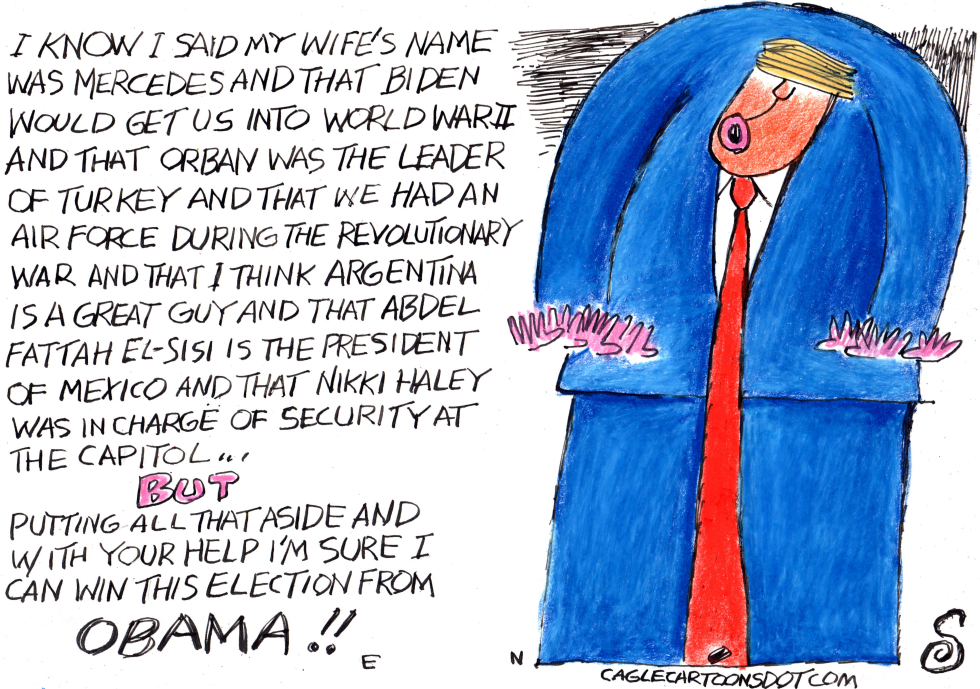 I KNOW I SAID MY WIFE'S NAME
WAS MERCEDES AND THAT BIDEN
WOULD GET US INTO WORLD WAR II
AND THAT ORBAN WAS THE LEADER
OF TURKEY AND THAT WE HAD AN
AIR FORCE DURING THE REVOLUTIONARY
WAR AND THAT I THINK ARGENTINA
IS A GREAT GUY AND THAT ABDEL
FATTAH EL-SISI IS THE PRESIDENT
OF MEXICO AND THAT NIKKI HALEY
WAS IN CHARGE OF SECURITY AT
THE CAPITOL...
BUT
PUTTING ALL THAT ASIDE AND
WITH YOUR HELP I'M SURE I
CAN WIN THIS ELECTION FROM
OBAMA!!
E N S
CAGLECARTOONSDOTCOM